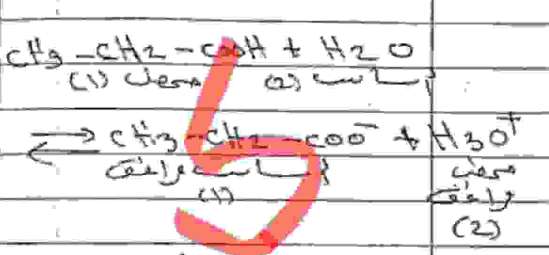 CH3-CH2-COOH + H2O
حمض (1) أساس (2)
⇌ CH3-CH2-COO⁻ + H3O⁺
أساس مرافق حمض
(1) مرافق
(2)
5